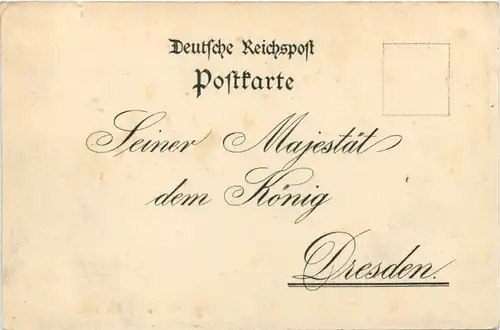 Deutsche Reichspost
Postkarte
Seiner Majestät
dem König
Dresden.